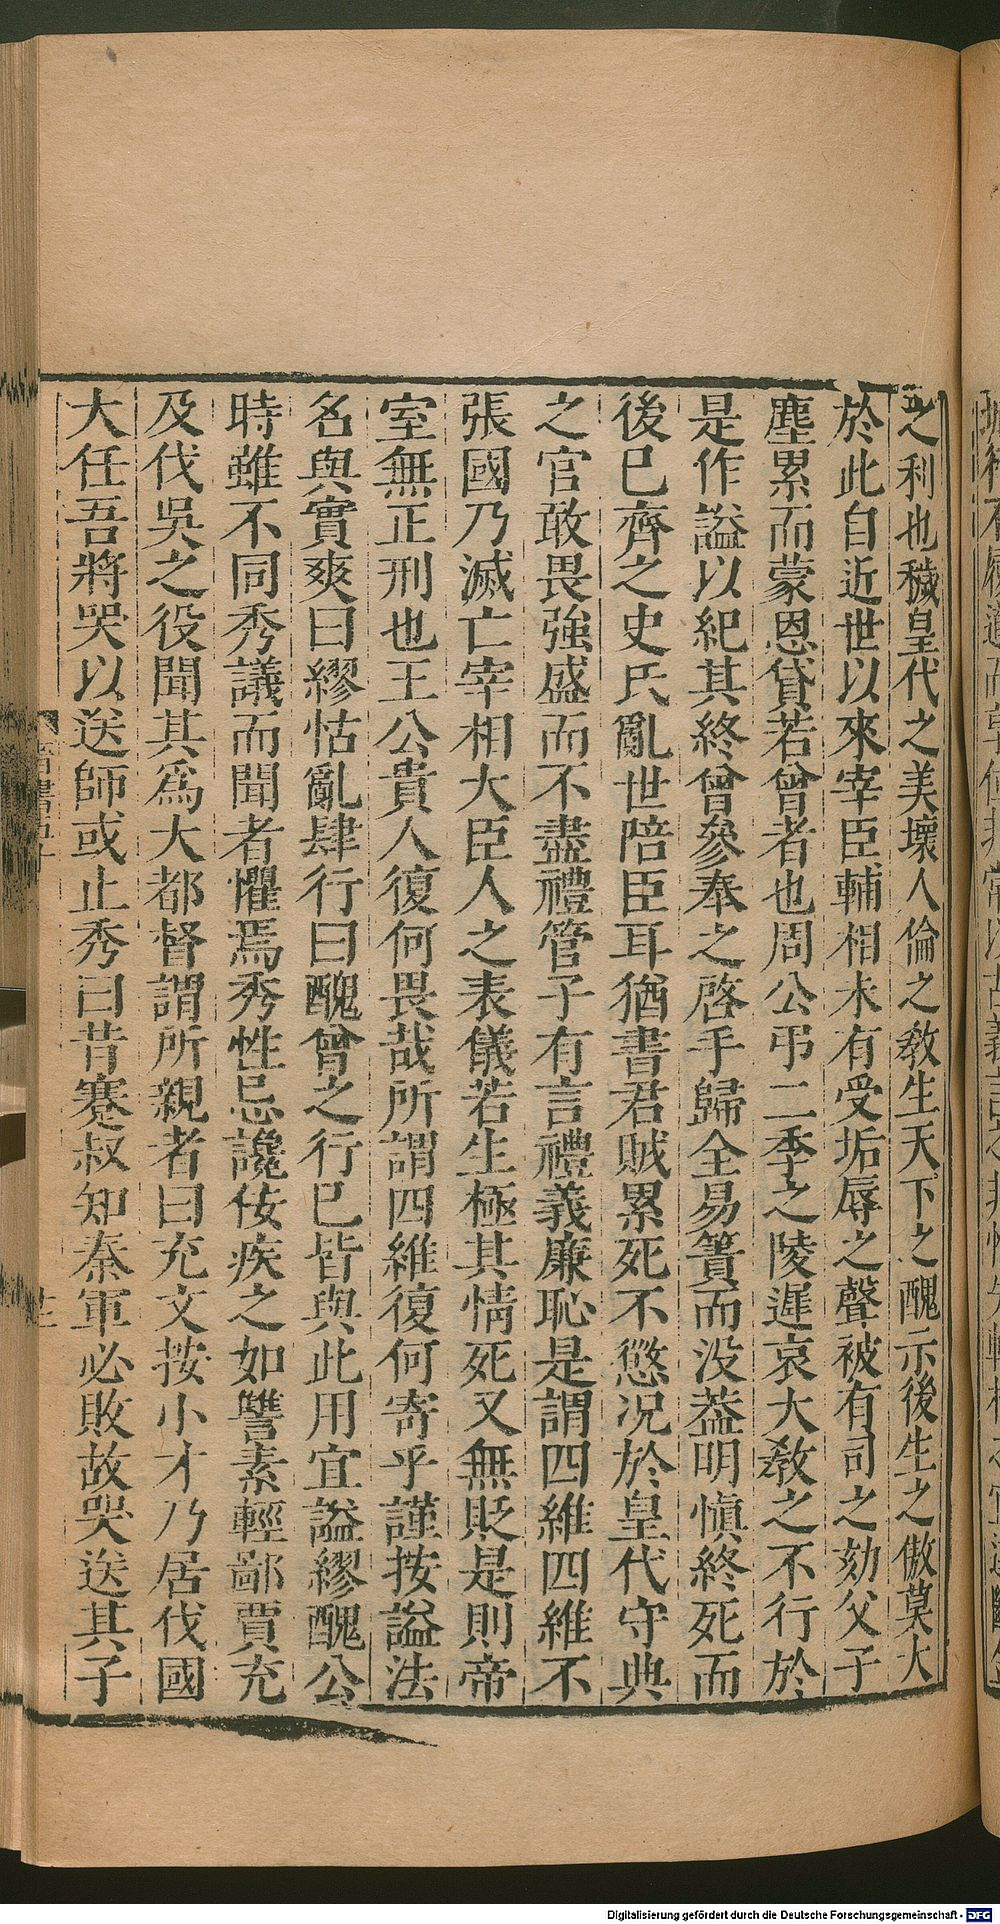 之利也穢皇代之美壞人倫之教生天下之醜示後生之傲莫大
於此自近世以來宰臣輔相未有受垢辱之聲被有司之劾父子
塵累而蒙恩貸若曾者也周公弔二季之陵遲哀大教之不行於
是作謚以紀其終曾參奉之啓手歸全易簀而没葢明愼終死而
後已齊之史氏亂世陪臣耳猶書君賊累死不懲況於皇代守典
之官敢畏強盛而不盡禮管子有言禮義廉恥是謂四維四維不
張國乃滅亡宰相大臣人之表儀若生極其情死又無貶是則帝
室無正刑也王公貴人復何畏哉所謂四維復何寄乎謹按謚法
名與實爽曰繆怙亂肆行曰醜曾之行已皆與此用宜謚繆醜公
時雖不同秀議而聞者懼焉秀性忌讒佞疾之如讐素輕鄙賈充
及伐吳之役聞其爲大都督謂所親者曰充文按小才乃居伐國
大任吾將哭以送師或止秀曰昔蹇叔知秦軍必敗故哭送其子
Digitalisierung gefördert durch die Deutsche Forschungsgemeinschaft - DFG